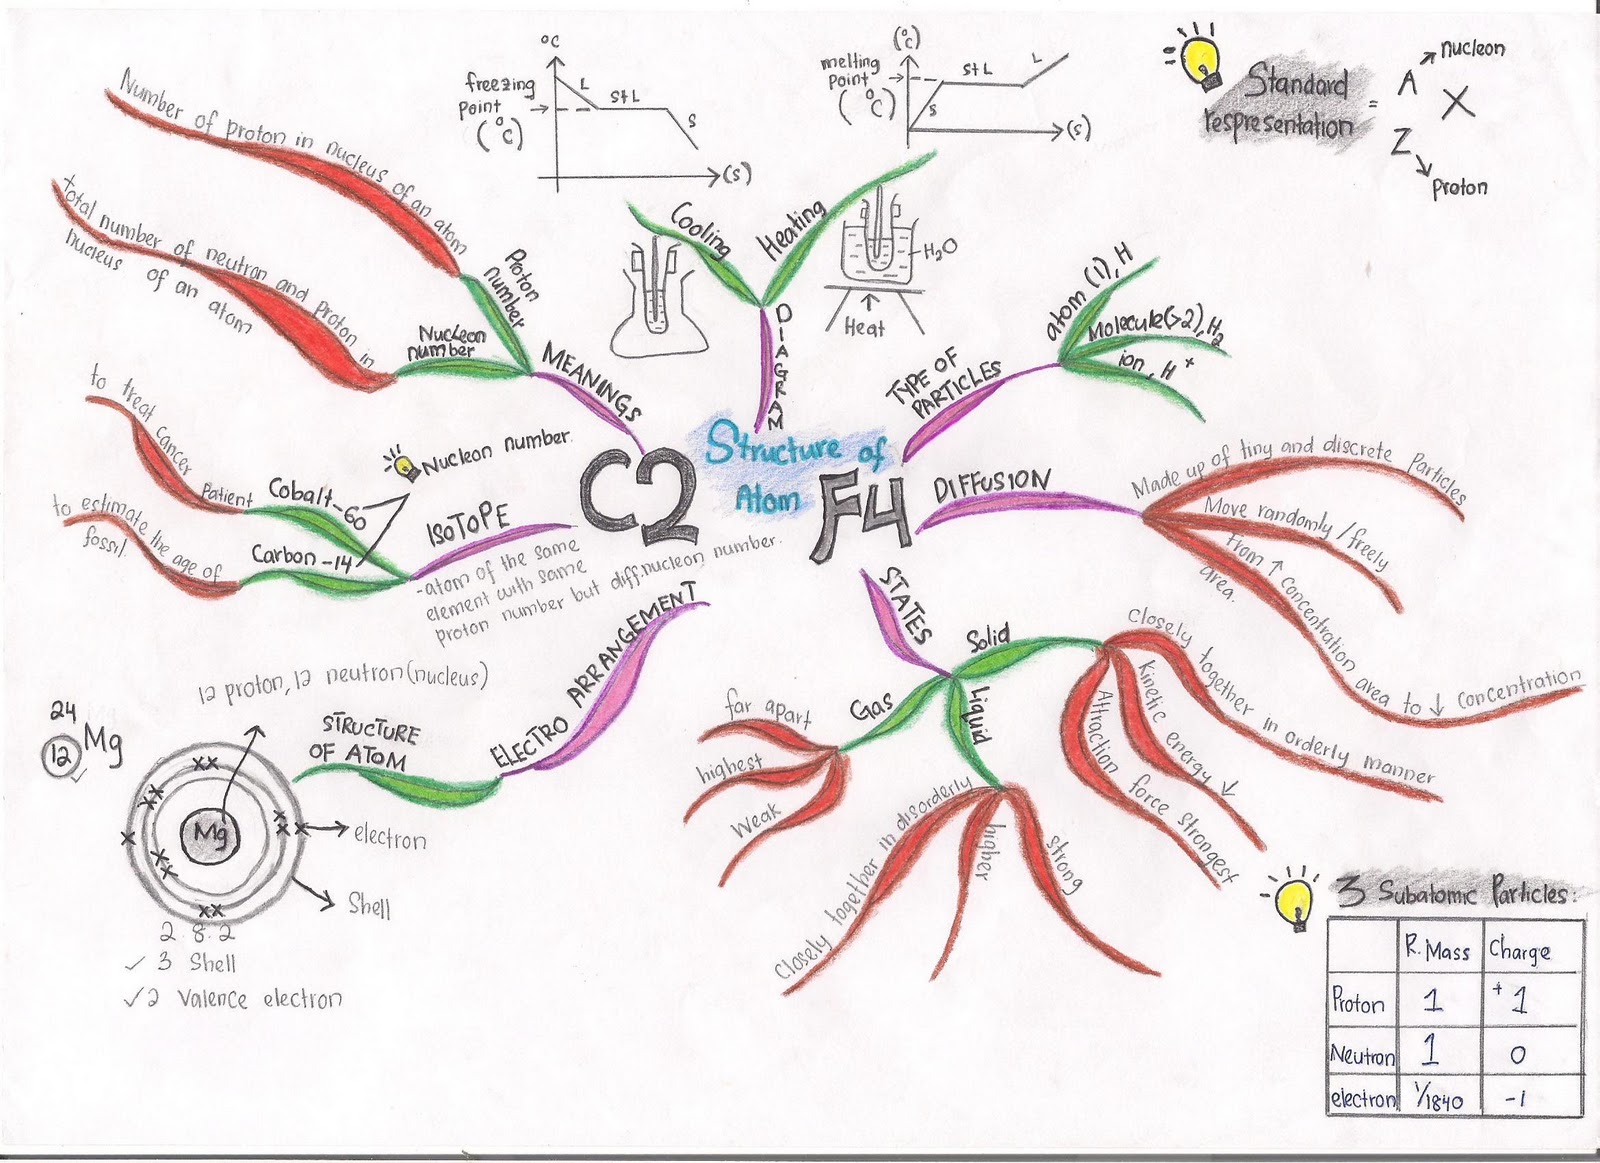 Structure of
Atom
C2
F4
MEANINGS
Proton
number
Number of proton in nucleus of an atom
Nucleon
number
total number of neutron and proton in
nucleus of an atom
DIAGRAM
Cooling
°C
freezing
point
(°C)
L
S+L
S
(s)
Heating
(°C)
melting
point
(°C)
S
S+L
L
(s)
H₂O
Heat
Standard
respresentation
=
A
nucleon
X
Z
proton
TYPE OF
PARTICLES
atom (1), H
Molecule(>2), H₂
ion, H⁺
DIFFUSION
Made up of tiny and discrete Particles
Move randomly/freely
From ↑ Concentration area to ↓ Concentration
area.
STATES
Solid
Closely together in orderly manner
Kinetic energy ↓
Attraction force strongest
Liquid
Closely together in disorderly
higher
strong
Gas
far apart
highest
Weak
ISOTOPE
- atom of the same
element with same
proton number but diff.nucleon number.
Nucleon number.
Cobalt-60
to treat cancer Patient
Carbon-14
to estimate the age of
fossil.
ELECTRO ARRANGEMENT
STRUCTURE
OF ATOM
12 proton, 12 neutron (nucleus)
24
12
Mg
Mg
electron
Shell
2.8.2
✓ 3 Shell
✓ 2 Valence electron
3 Subatomic Particles:
R. Mass Charge
Proton 1 +1
Neutron 1 0
electron 1/1840 -1